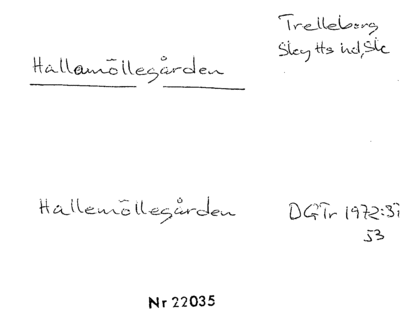 Trelleborg
Skytts hd, Sk
Hallamöllegården
Hallemöllegården DGTr 1972:37
53
Nr 22035